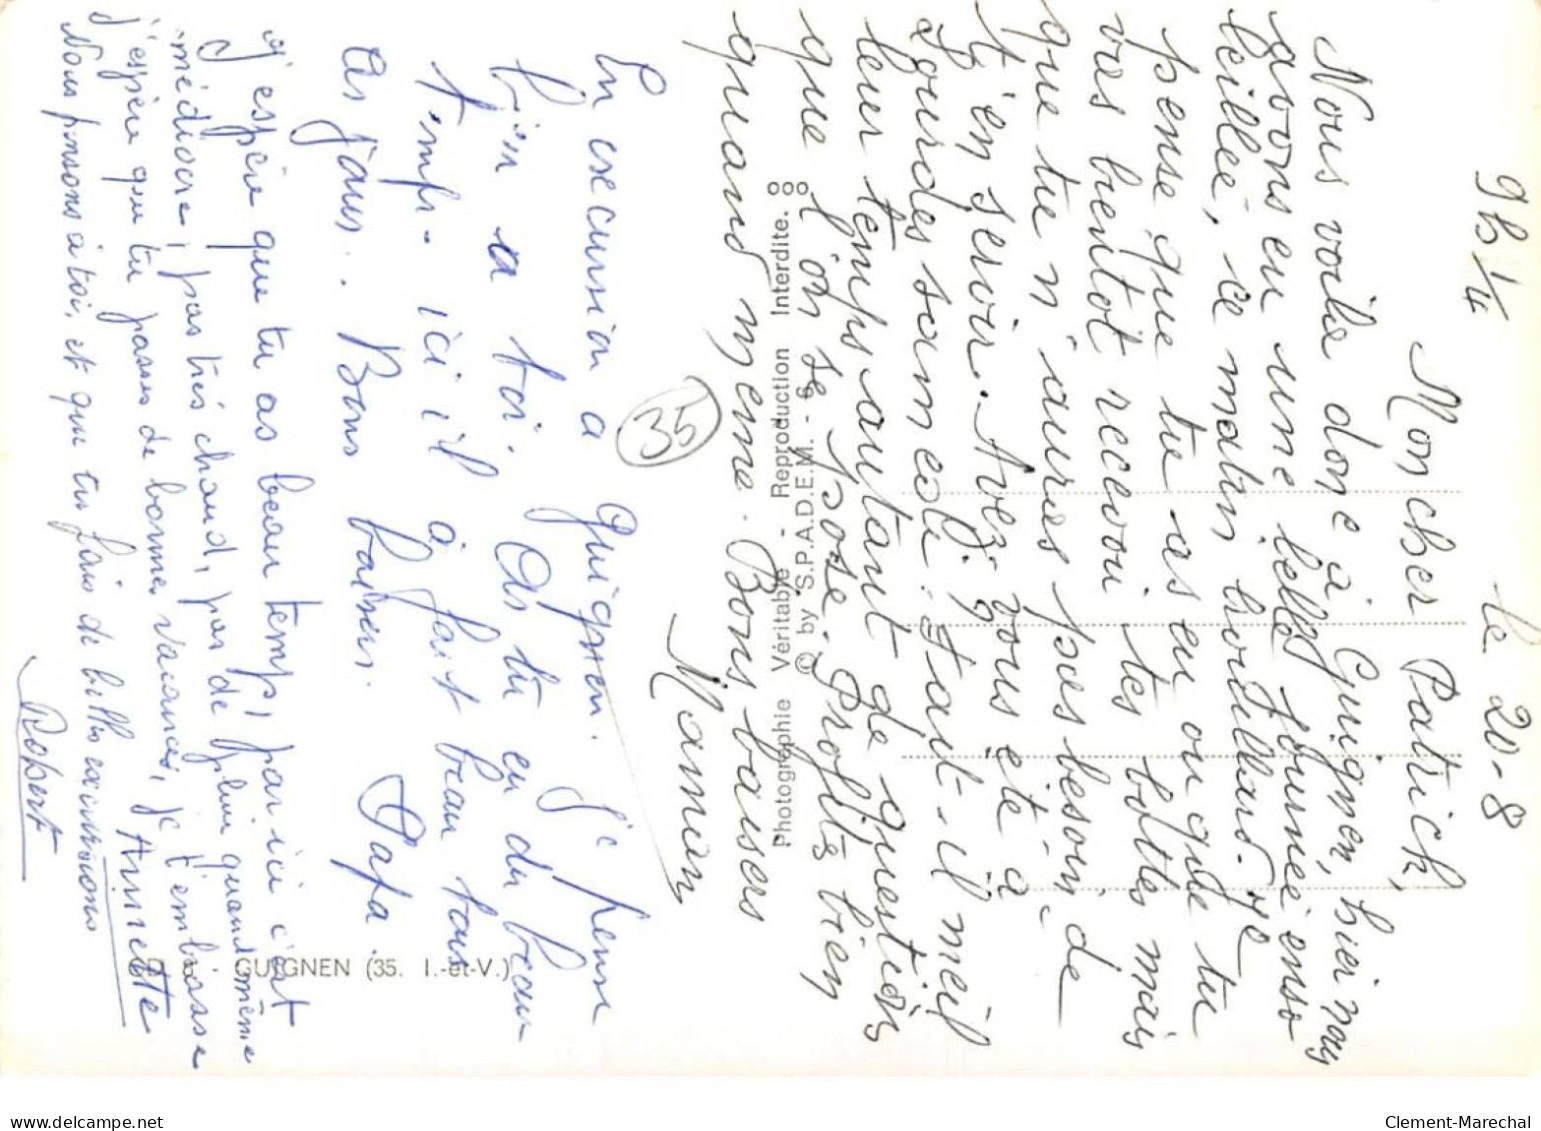 9h 1/4 le 20-8
Mon cher Patrick,
Nous voila donc à Guignen, hier nous
avons eu une belle journée enso
leillée, ce matin brouillard. Je
pense que tu as eu ou que tu
vas bientot recevoir tes bottes mais
que tu n'auras pas besoin de
t'en servir. Avez vous été à
Lourdes samedi. Faut-il meil
leur temps autant de question
que l'on se pose. Profite bien
quand meme. Bons baisers
Maman
En excursion a Guignen. Je pense
bien a toi. As tu eu du beau
temps. ici il à fait beau tous
ces jours. Bons baisers. Papa.
J'espère que tu as beau temps, par ici c'est
médiocre, pas très chaud, pas de pluie quand même
J'espère que tu passes de bonnes vacances, je t'embrasse
Annette
Nous pensons à toi, et que tu fais de belles excursions
Robert
35
Photographie Véritable - Reproduction Interdite.
© by S.P.A.D.E.M. -
GUIGNEN (35. I.-et-V.)
Clement-Marechal